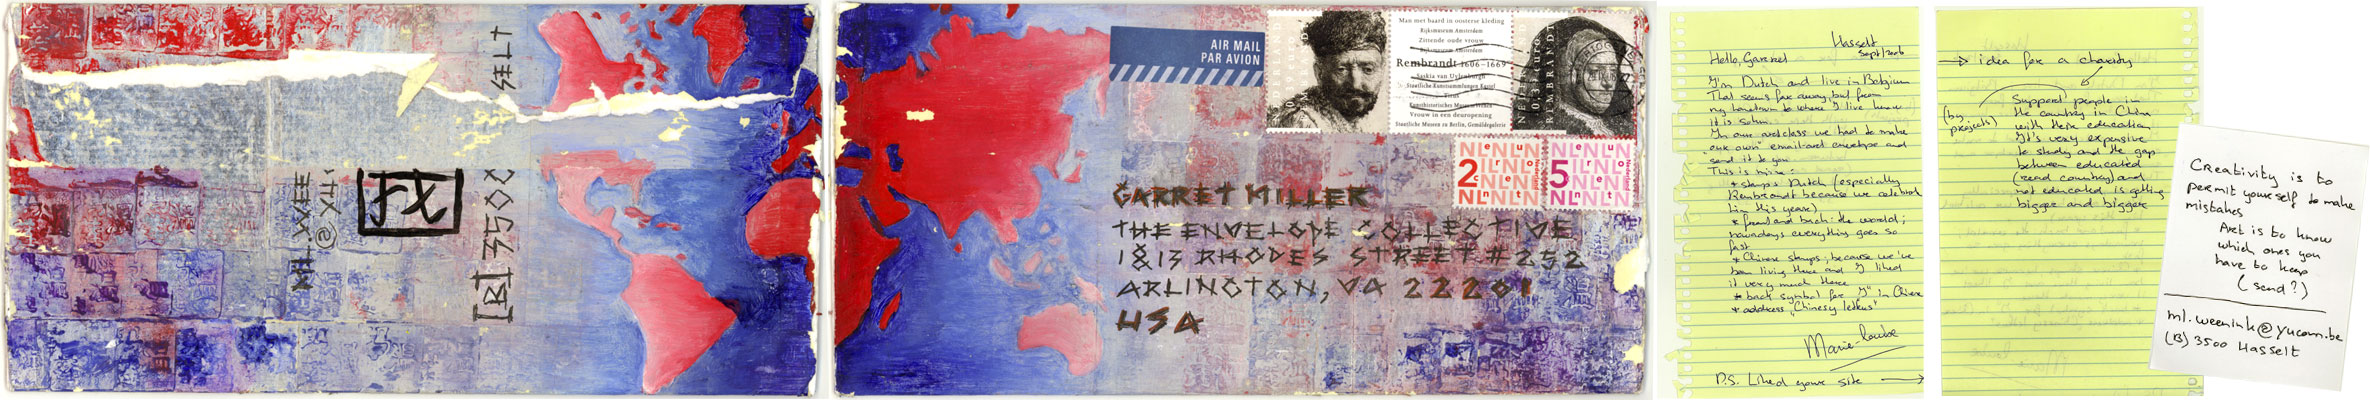 AIR MAIL
PAR AVION
Man met baard in oosterse kleding
Rijksmuseum Amsterdam
Zittende oude vrouw
Rijksmuseum Amsterdam
Rembrandt 1606-1669
Saskia van Uylenburgh
Staatliche Kunstsammlungen Kassel
Titus
Kunsthistorisches Museum Wenen
Vrouw in een deuropening
Staatliche Museen zu Berlin, Gemäldegalerie
REMBRANDT
2
5
GARRET MILLER
THE ENVELOPE COLLECTIVE
1813 RHODES STREET #252
ARLINGTON, VA 22201
USA
[B] 3500
SELT
Hasselt
Sept/2006
Hello, Garret
I'm Dutch and live in Belgium
That seems far away, but from
my hometown to where I live know
it is 50km.
In our artclass we had to make
"our own" email-art envelope and
send it to you
This is mine:
* stamps Dutch (especially
Rembrandt because we celebrated
him this year)
* front and back: the world;
nowadays everything goes so
fast
* Chinese stamps; because we've
been living there and I liked
it very much there
* back symbol for "I" in Chinese
* address "Chinesy letters"
Marie-Louise
P.S. Liked youre site →
→ idea for a charity
(by projects)
Support people in
the country in China
with their education
It's very expensive
to study and the gap
between educated
(read country) and
not educated is getting
bigger and bigger
Creativity is to
permit yourself to make
mistakes
Art is to know
which ones you
have to keep
(send?)
ml.weenink@yucom.be
(B) 3500 Hasselt